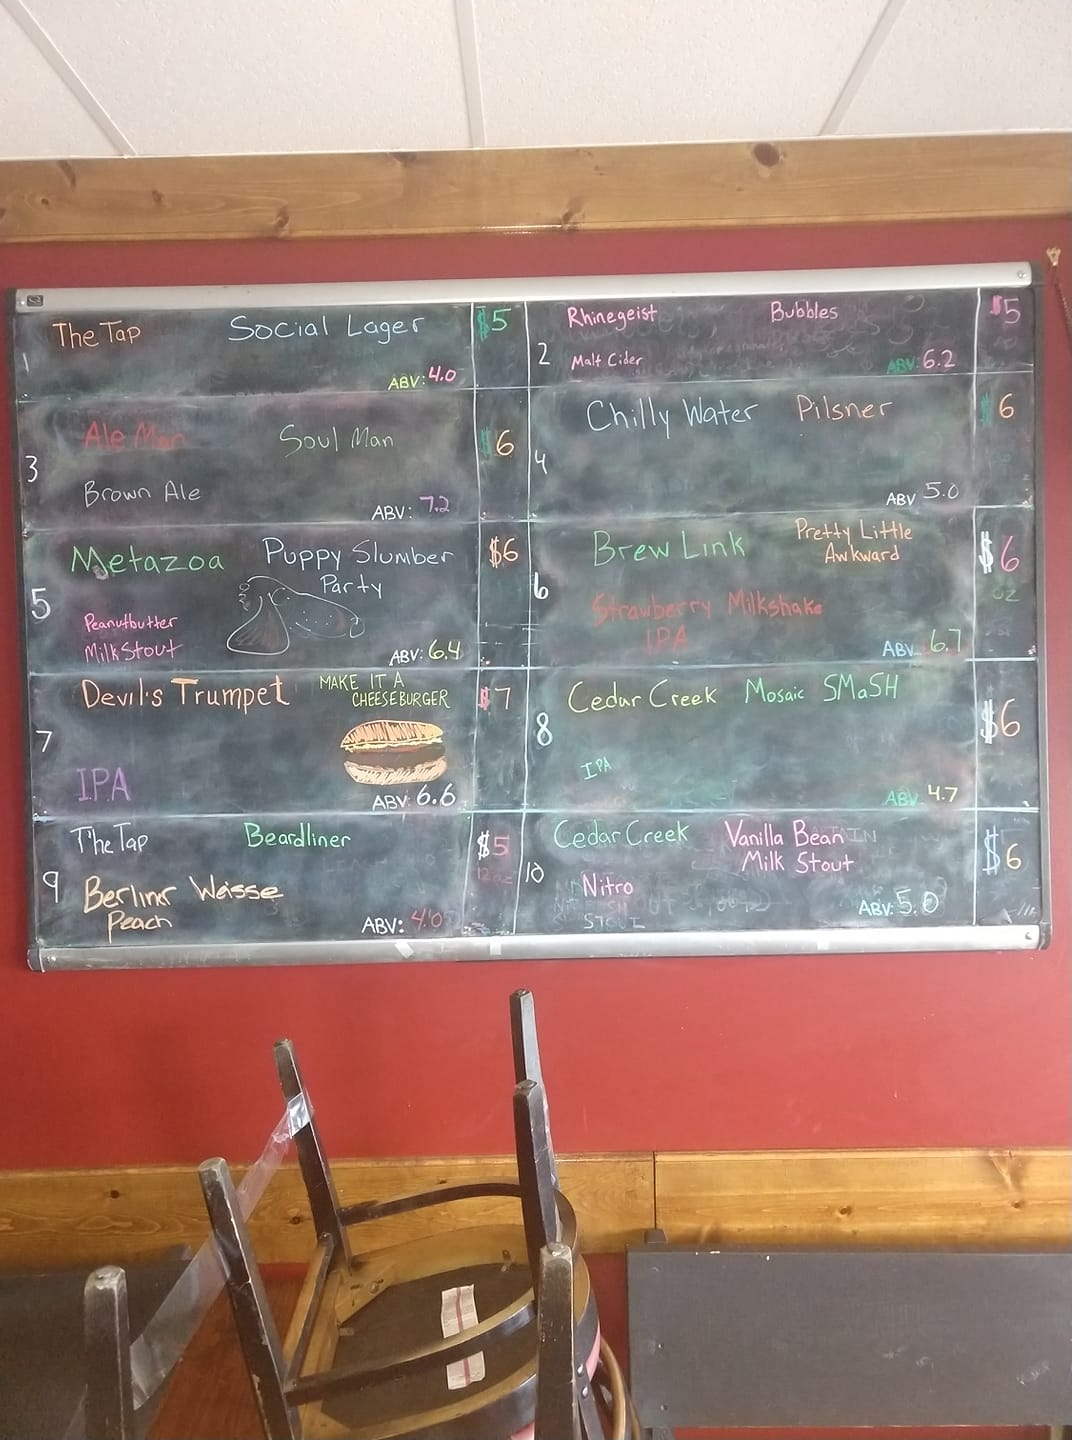 1
The Tap Social Lager $5
ABV: 4.0
2
Rhinegeist Bubbles $5
Malt Cider ABV: 6.2
3
Ale Man Soul Man $6
Brown Ale ABV: 7.2
4
Chilly Water Pilsner $6
ABV 5.0
5
Metazoa Puppy Slumber $6
Party
Peanutbutter
Milk Stout ABV: 6.4
6
Brew Link Pretty Little $6
Awkward
oz
Strawberry Milkshake
IPA ABV 6.7
7
Devil's Trumpet MAKE IT A $7
CHEESEBURGER
IPA ABV: 6.6
8
Cedar Creek Mosaic SMaSH $6
IPA
ABV 4.7
9
The Tap Beardliner $5
12oz
Berlinr Weisse
Peach ABV: 4.0
10
Cedar Creek Vanilla Bean $6
Milk Stout
Nitro
ABV: 5.0
STOUT